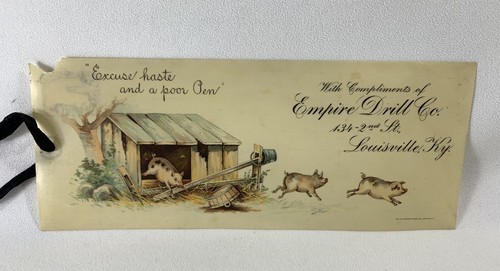 "Excuse haste
and a poor Pen"
With Compliments of
Empire Drill Co.
134-2nd St.
Louisville, Ky.